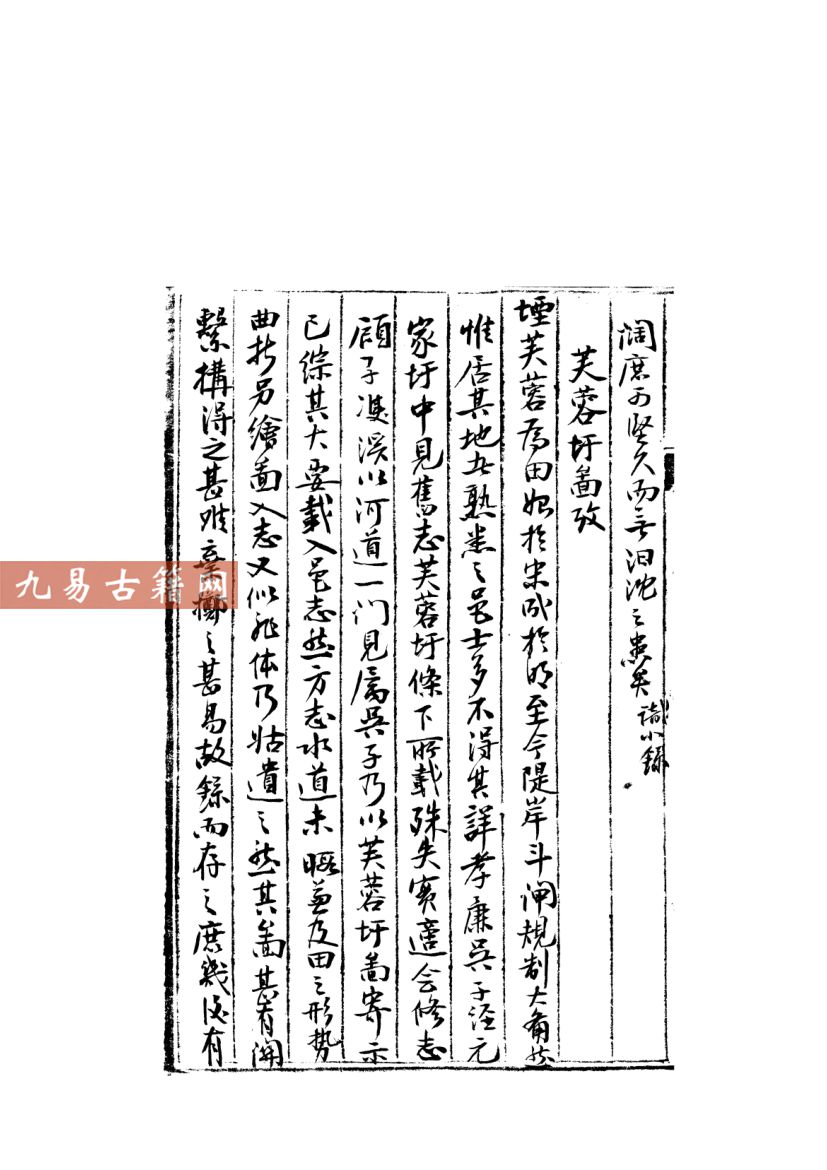 闊庶可堅久而無汩沈之患矣 識小錄
芙蓉圩啚攷
堙芙蓉為田始於宋成於明至今隄岸斗閘規制大備然
惟居其地者熟悉之邑士多不得其詳孝廉吳子涇元
家圩中見舊志芙蓉圩條下所載殊失實適會修志
顧子溪以河道一门見屬吳子乃以芙蓉圩啚寄示
已綜其大要載入邑志然方志水道未暇並及田之形势
曲折另繪啚入志又似非体乃姑遺之然其啚甚有関
繫搆得之甚难棄擲之甚易故錄而存之庶幾後有
九易古籍网